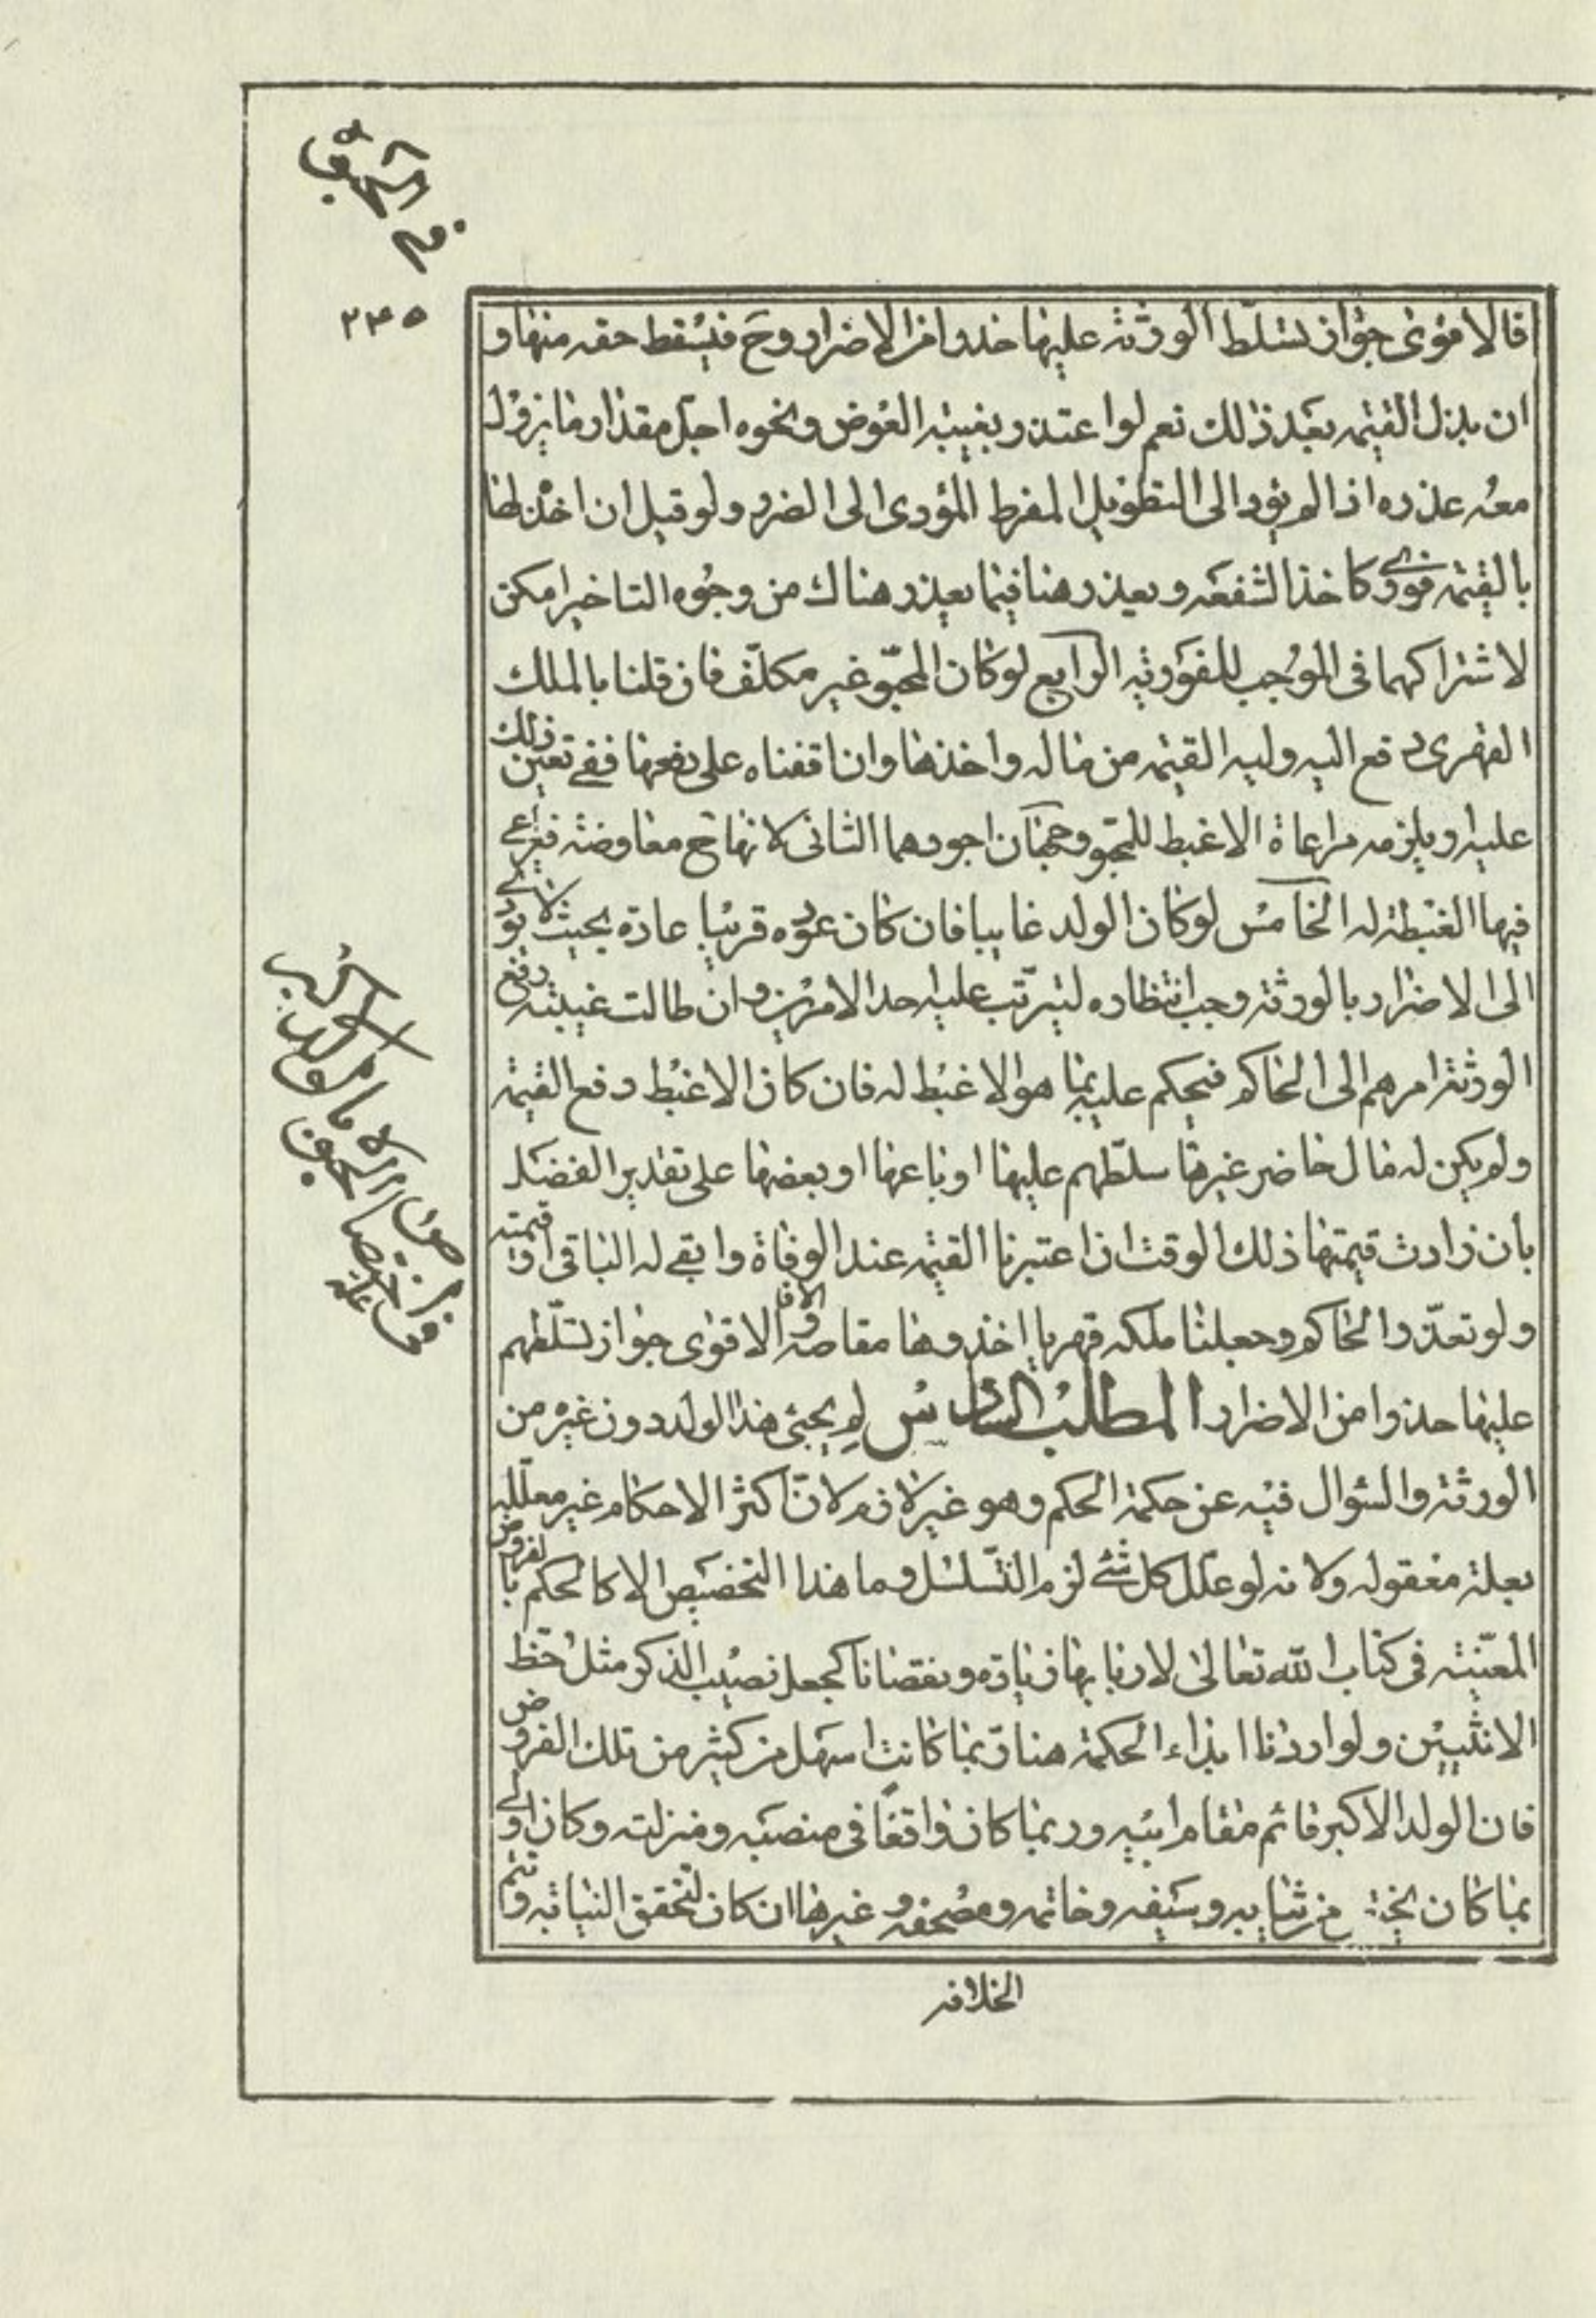 في الحبوة
٢٣٥
فالاقوى جواز تسلّط الورثة عليها حذرا من الاضرار وح فيسقط حقه منها و
ان بذل القيمه بعد ذلك نعم لو اعتذر بغيبه العوض ونحوه اجّل مقدار ما يزول
معه عذره اذا لم يؤد الى التطويل المفرط المؤدى الى الضرر ولو قيل ان اخذ لها
بالقيمة فورى كاخذ الشفعه ويعذر هنا فيما يعذر هناك من وجوه التاخير امكن
لاشتراكهما فى الموجب للفوريه الرابع لو كان المحبّو غير مكلّف فان قلنا بالملك
القهرى دفع اليه وليه القيمه من ماله واخذها وان اقفناه على دفعها ففى تعين ذلك
عليه او يلزمه مراعاة الاغبط للمحبو وجهان اجودهما الثانى لانها ح معاوضة فيراعى
فيها الغبطة له الخامس لو كان الولد غايبا فان كان عوده قريبا عادة بحيث لا يؤدى
الى الاضرار بالورثة وجب انتظاره ليترتّب عليه احد الامرين وان طالت غيبته دفع
الورثة امرهم الى الحاكم فيحكم عليه بما هو الاغبط له فان كان الاغبط دفع القيمة
ولم يكن له مال حاضر غيرها سلّطهم عليها او باعها او بعضها على تقدير الفضل
بان زادت قيمتها ذلك الوقت اذا اعتبرنا القيمه عند الوفاة وابقى له الباقى او قيمته
ولو تعذّر الحاكم وجعلنا ملكه قهريا اخذوها مقاصه والا فالاقوى جواز تسلّطهم
عليها حذرا من الاضرار المطلب السادس لم يحبى هذا الولد دون غيره من
الورثة والسؤال فيه عن حكمة الحكم وهو غير لازم لانّ اكثر الاحكام غير معلّله
بعلة معقوله ولانه لو علّل كل شئ لزم التّسلسل وما هذا التخصيص الا كالحكم بالفروض
المعيّنة فى كتاب الله تعالى لاربابها زيادة ونقصانا كجعل نصيب الذكر مثل حظّ
الانثيين ولو اردنا ابداء الحكمة هنا ربّما كانت اسهل من كثير من تلك الفروض
فان الولد الاكبر قائم مقام ابيه وربما كان واقعا فى منصبه ومنزلته وكان اولى
بما كان يخته من ثيابه وسيفه وخاتمه ومصحفه وغيرها ان كان لتحقق النيابه وتتم
الخلافه